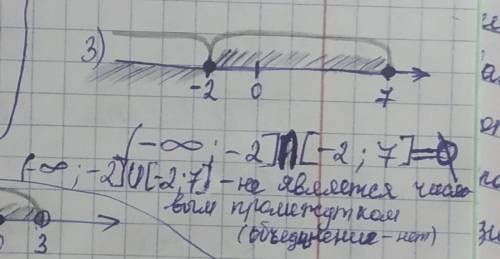 3)
-2 0 7
(-∞; -2]∩[-2; 7]=∅
(-∞; -2]U[-2; 7] - не является число
вым промежутком
(объединение - нет)
3